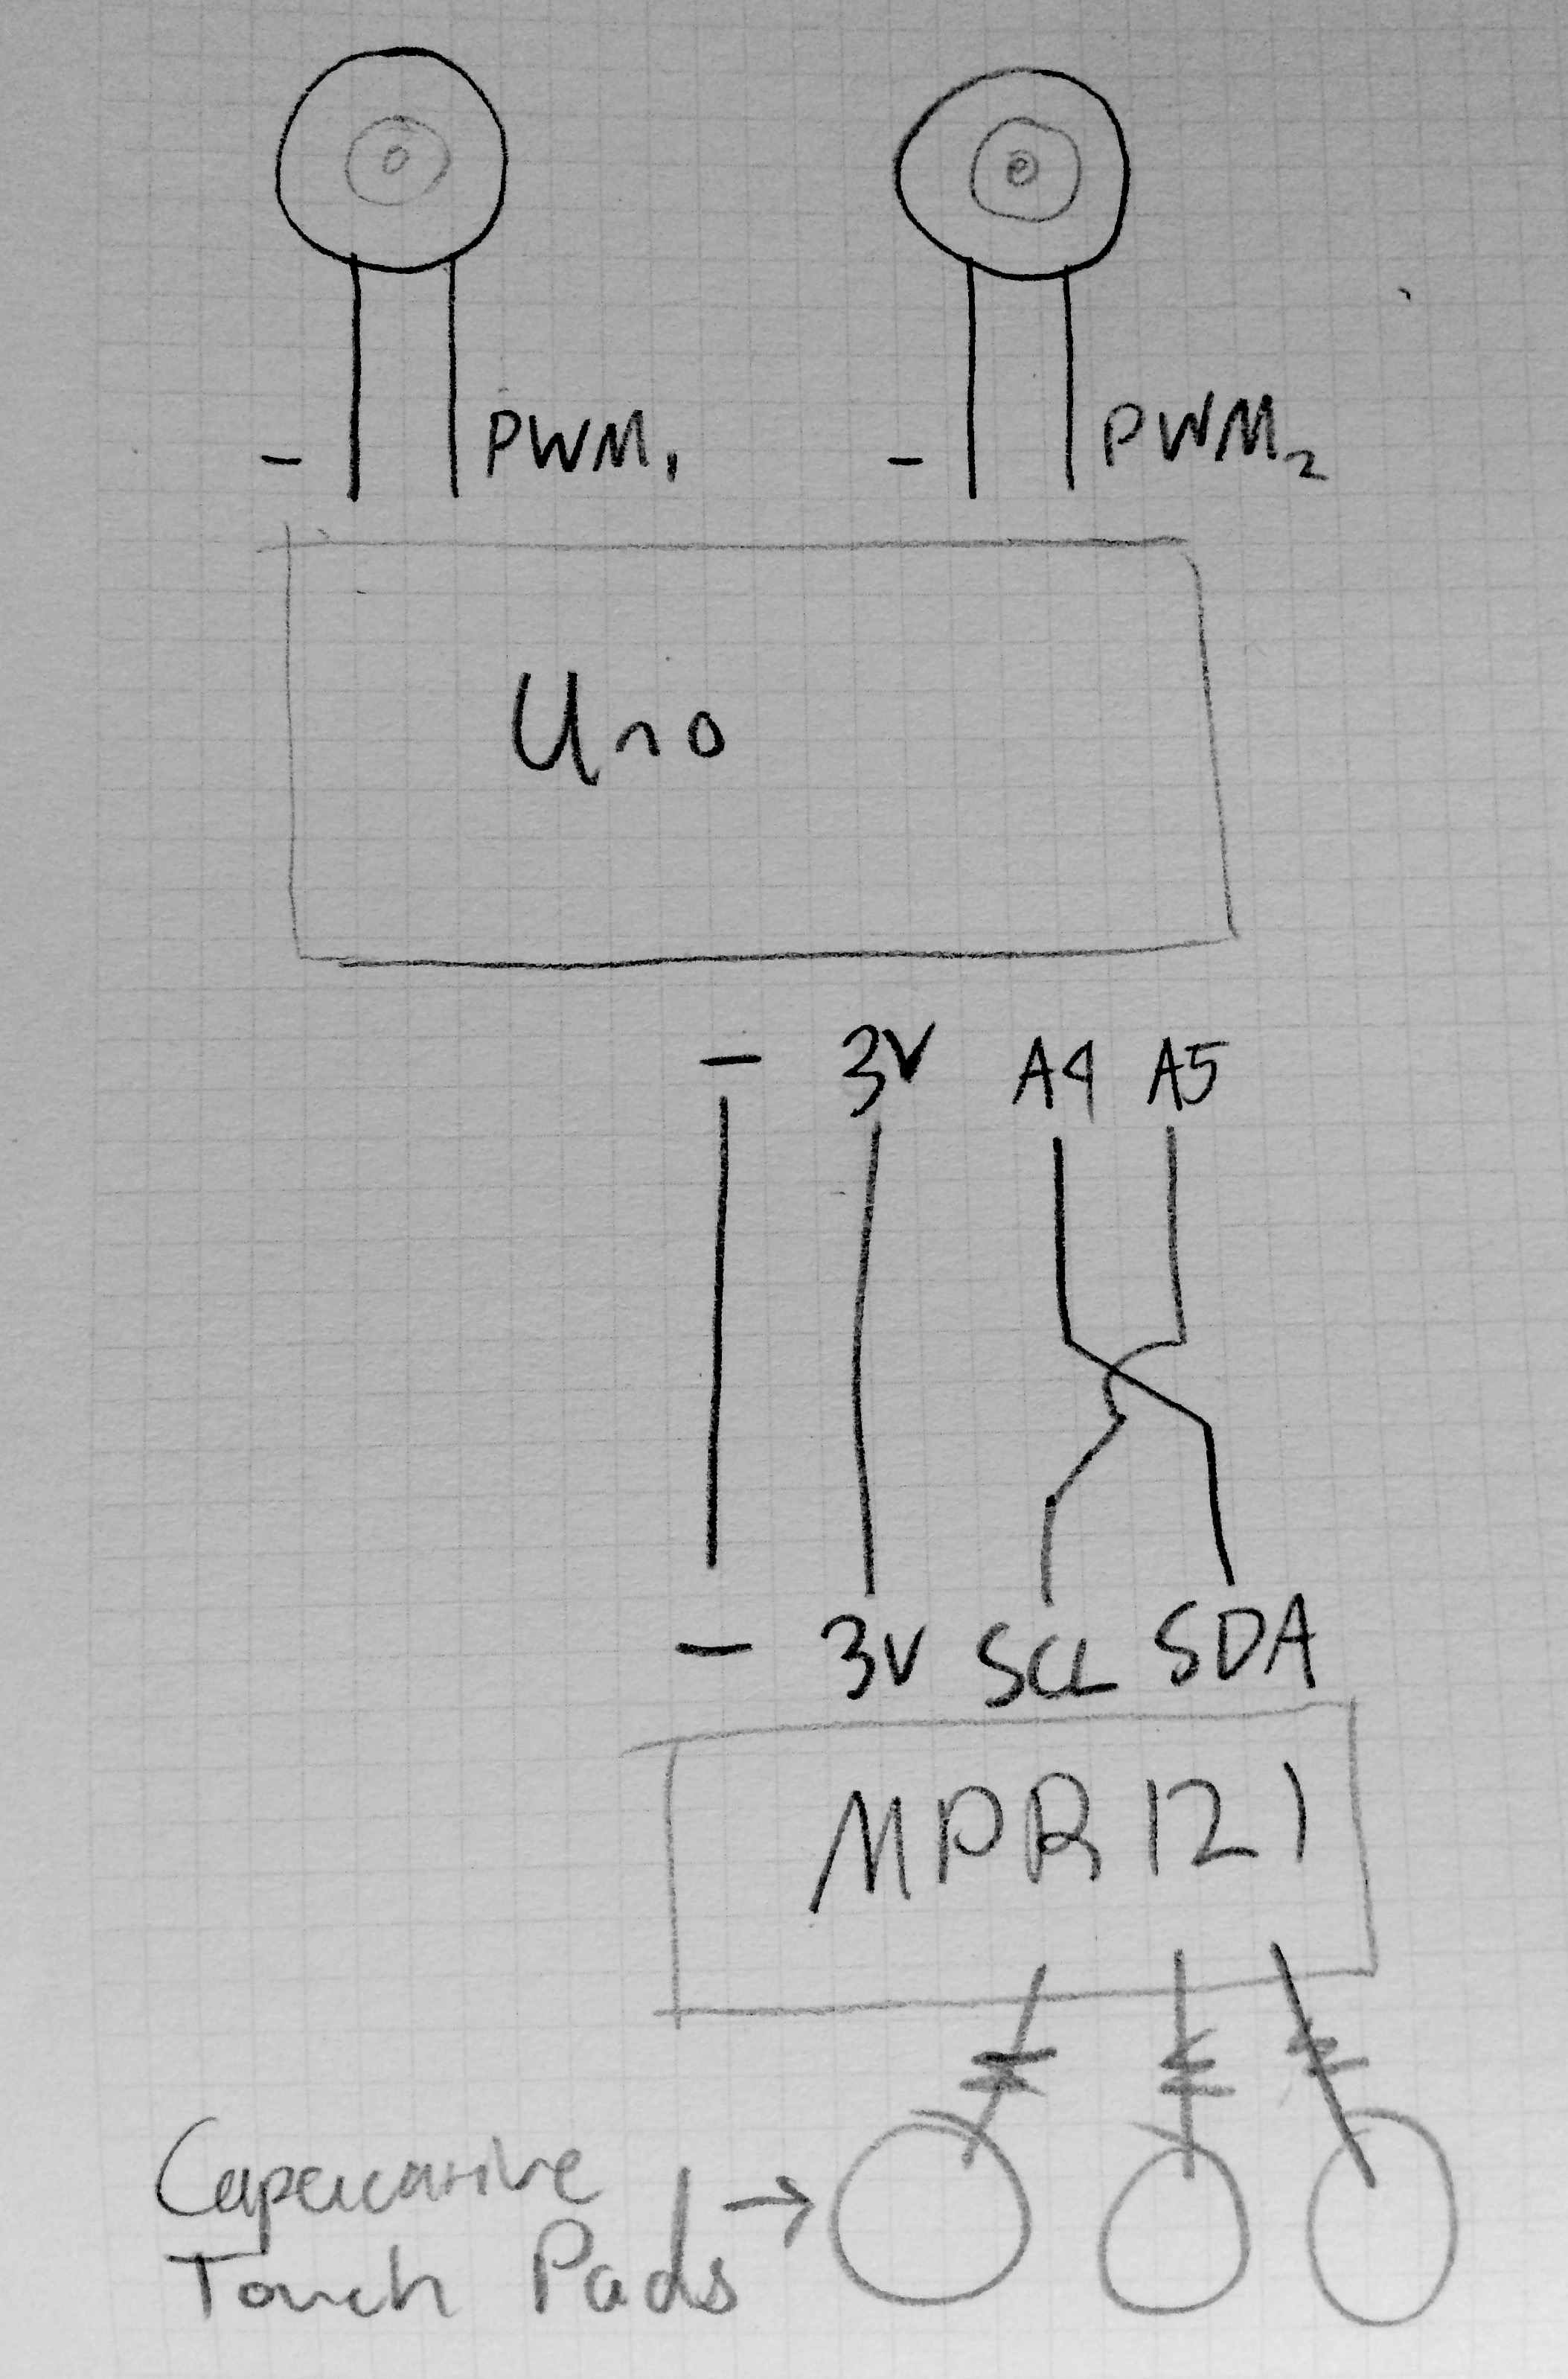 - PWM₁ - PWM₂
Uno
- 3V A4 A5
- 3V SCL SDA
MPR121
Capacitive
Touch Pads →